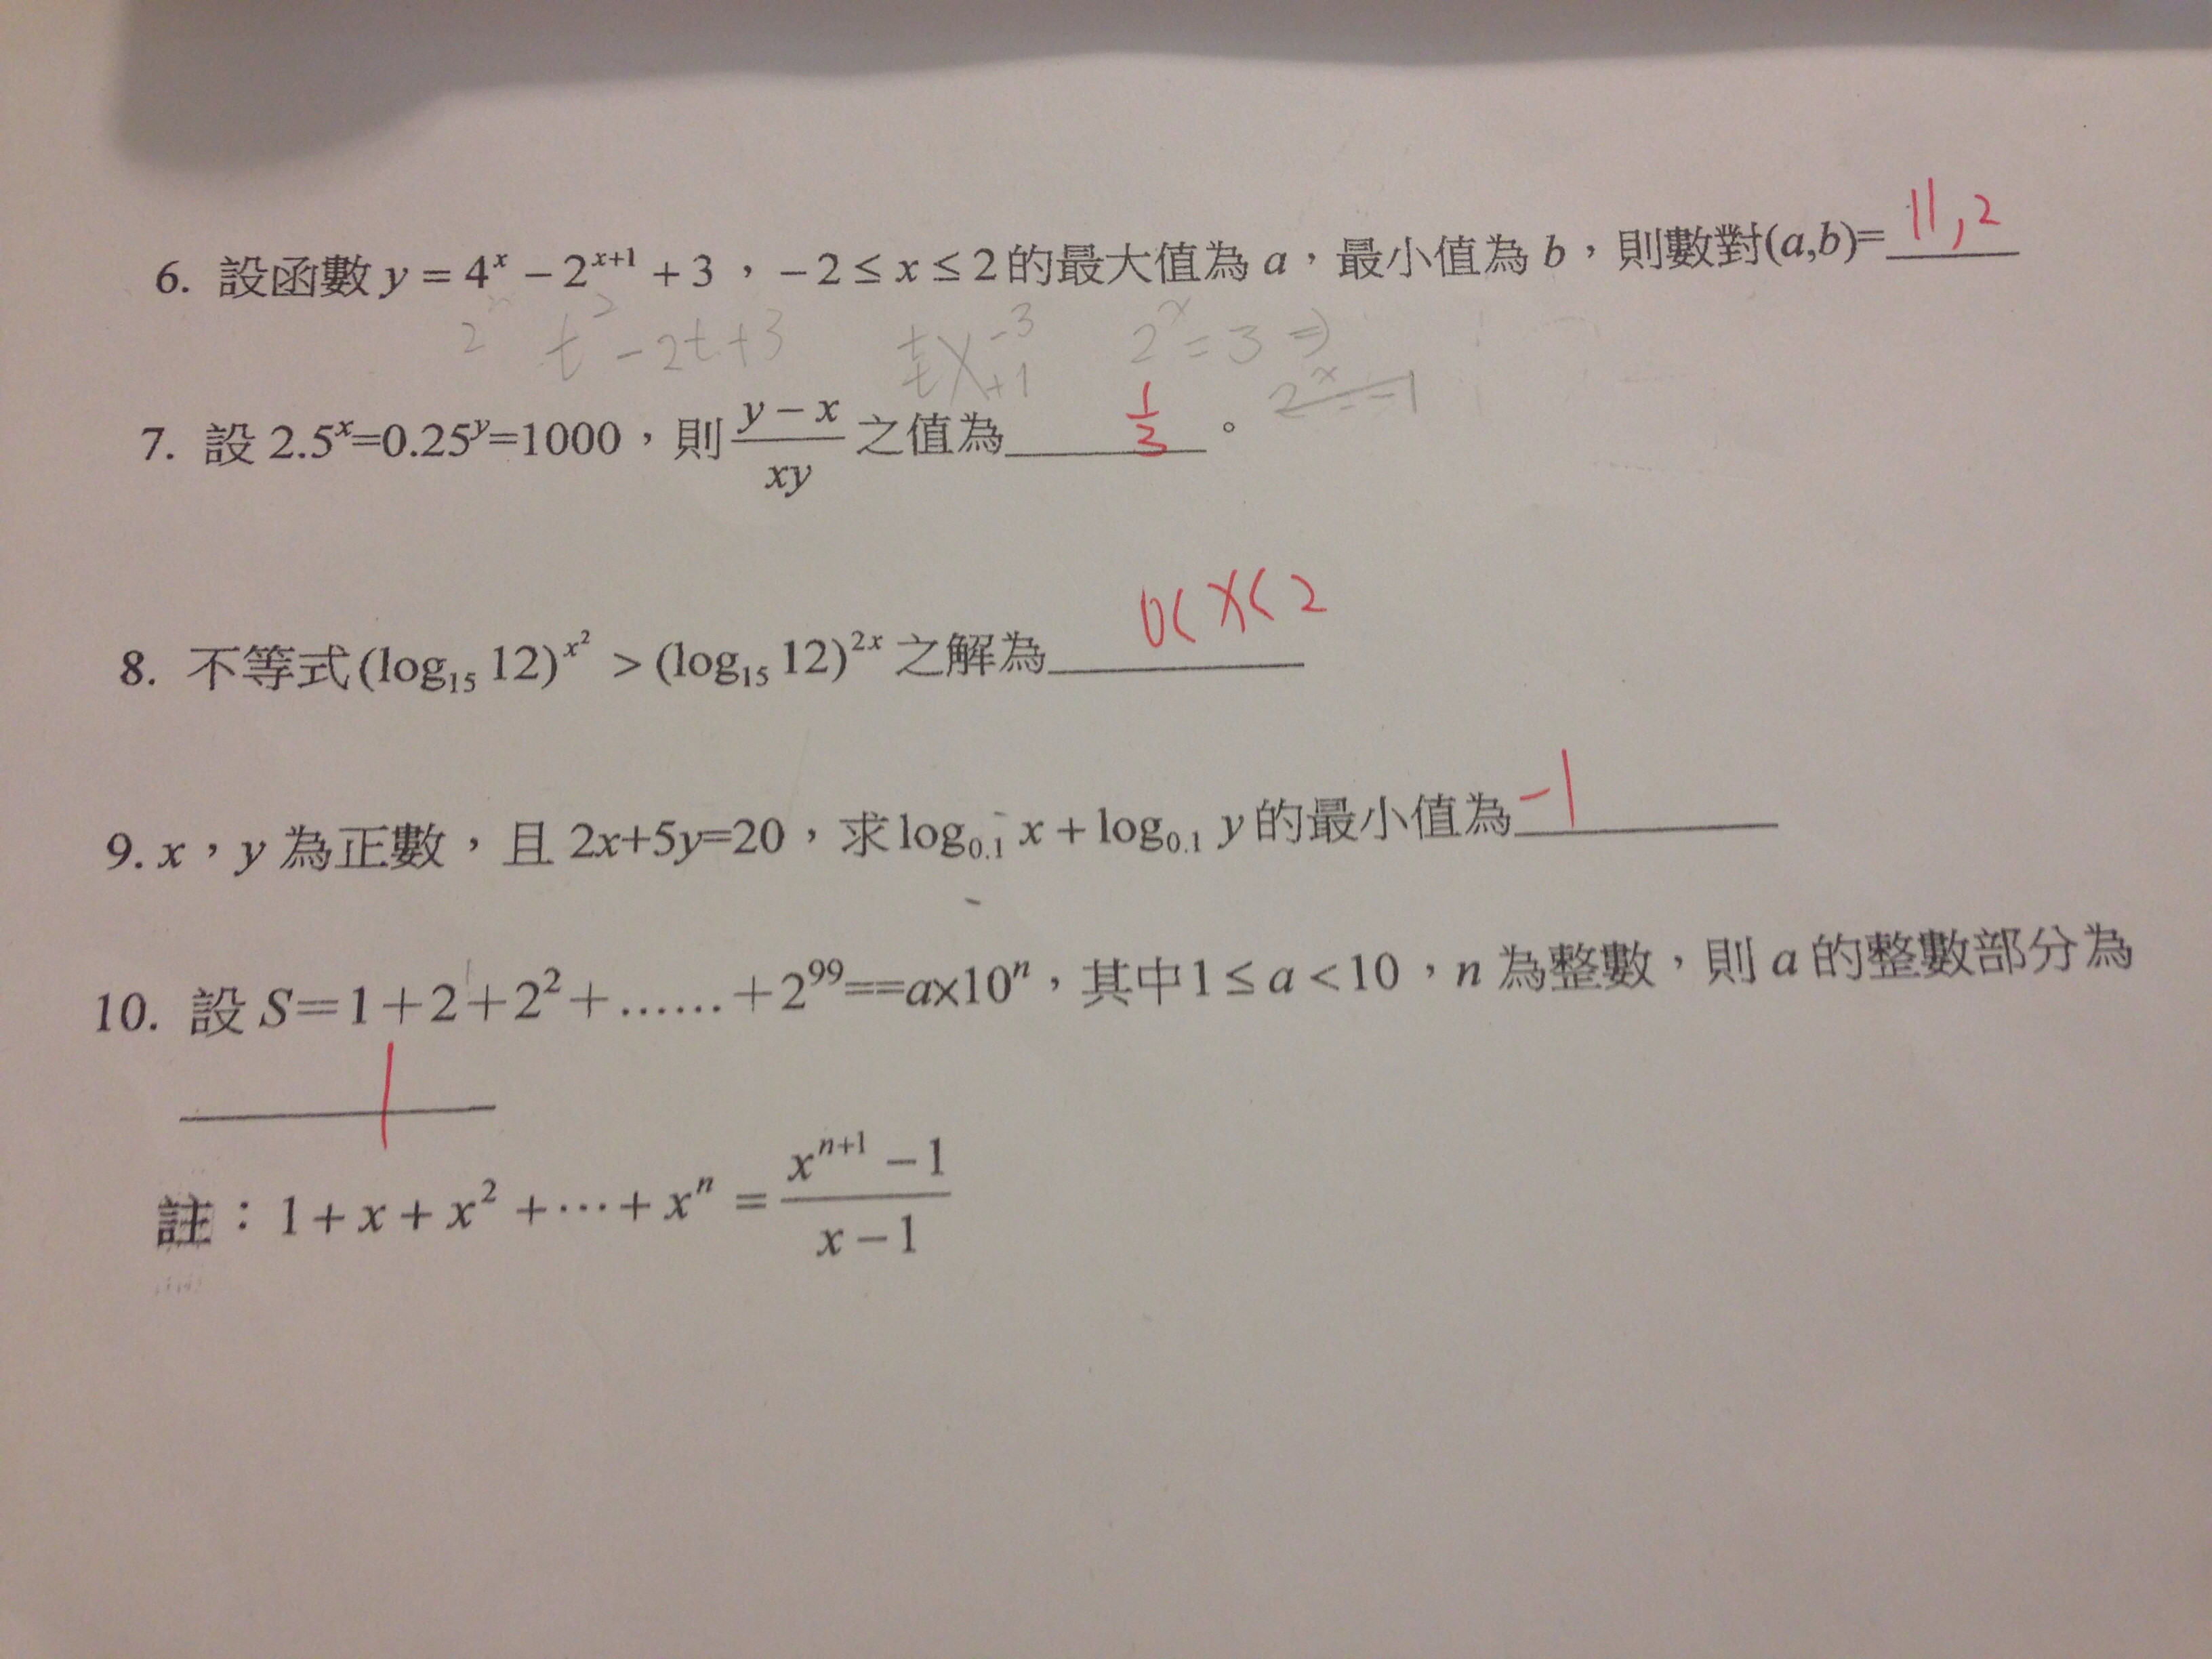 6. 設函數 y = 4ˣ − 2ˣ⁺¹ + 3，−2 ≤ x ≤ 2 的最大值為 a，最小值為 b，則數對(a,b)= 11,2
t² − 2t + 3
2ˣ = 3 ⇒
2ˣ = −1
7. 設 2.5ˣ=0.25ʸ=1000，則 (y − x)/(xy) 之值為 1/3 。
8. 不等式 (log₁₅ 12)^(x²) > (log₁₅ 12)^(2x) 之解為 0<x<2
9. x，y 為正數，且 2x+5y=20，求 log₀.₁ x + log₀.₁ y 的最小值為 −1
10. 設 S=1+2+2²+......+2⁹⁹==a×10ⁿ，其中 1 ≤ a < 10，n 為整數，則 a 的整數部分為
1
註：1 + x + x² + ⋯ + xⁿ = (xⁿ⁺¹ − 1)/(x − 1)